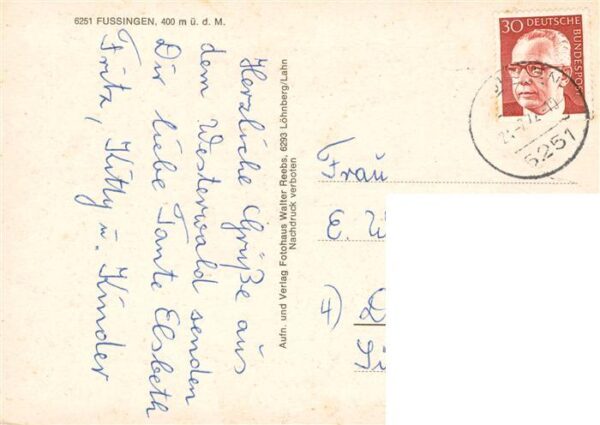 6251 FUSSINGEN, 400 m ü. d. M.
Herzliche Grüße aus
dem Westerwald senden
Dir liebe Tante Elsbeth
Fritz, Kitty u. Kinder
Aufn. und Verlag Fotohaus Walter Reebs, 6293 Löhnberg/Lahn
Nachdruck verboten
30 DEUTSCHE
BUNDESPOST
6251
Frau
E.
4)